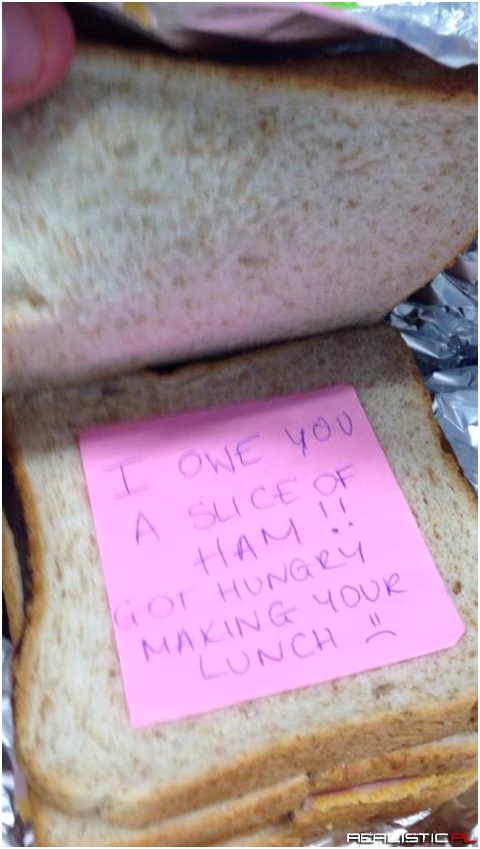 I OWE YOU
A SLICE OF
HAM !!
GOT HUNGRY
MAKING YOUR
LUNCH :(
REALISTIC.PL